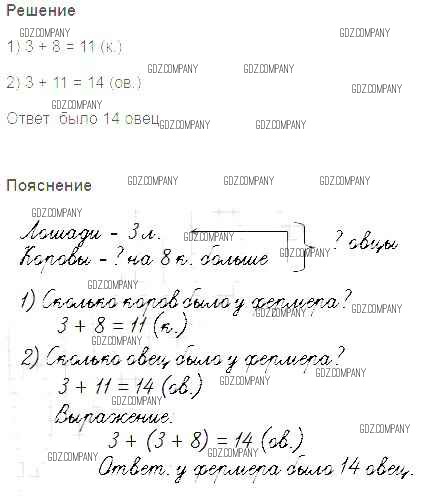 Решение
GDZ.COMPANY GDZ.COMPANY
1) 3 + 8 = 11 (к.)
GDZ.COMPANY GDZ.COMPANY
2) 3 + 11 = 14 (ов.)
GDZ.COMPANY
GDZ.COMPANY
Ответ было 14 овец
GDZ.COMPANY GDZ.COMPANY
Пояснение
GDZ.COMPANY GDZ.COMPANY GDZ.COMPANY
GDZ.COMPANY
Лошади - 3 л.
GDZ.COMPANY
? овцы
Коровы - ? на 8 к. больше
GDZ.COMPANY
GDZ.COMPANY
1) Сколько коров было у фермера?
GDZ.COMPANY GDZ.COMPANY
3 + 8 = 11 (к.)
GDZ.COMPANY
2) Сколько овец было у фермера?
GDZ.COMPANY
3 + 11 = 14 (ов.)
GDZ.COMPANY
GDZ.COMPANY
Выражение.
GDZ.COMPANY
3 + (3 + 8) = 14 (ов.)
GDZ.COMPANY
Ответ. у фермера было 14 овец.
GDZ.COMPANY